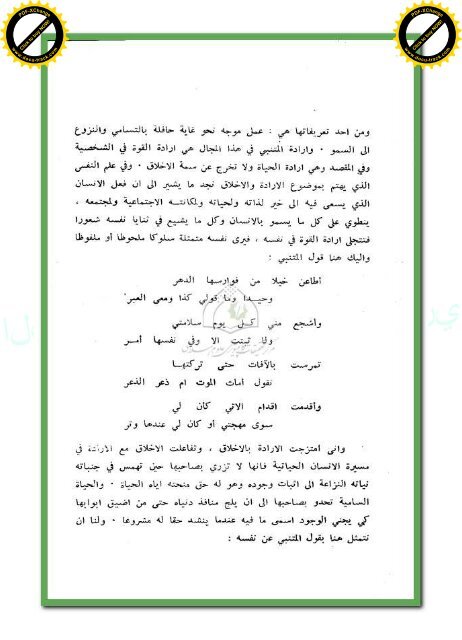 PDF-XChange
Click to buy NOW!
www.docu-track.com
PDF-XChange
Click to buy NOW!
www.docu-track.com
ومن احد تعريفاتها هي : عمل موجه نحو غاية حافلة بالتسامي والنزوع
الى السمو . وارادة المتنبي في هذا المجال هي ارادة القوة في الشخصية
وفي المقصد وهي ارادة الحياة ولا تخرج عن سمة الاخلاق . وفي علم النفس
الذي يهتم بموضوع الارادة والاخلاق نجد ما يشير الى ان فعل الانسان
الذي يسعى فيه الى خير لذاته ولحياته ولمكانته الاجتماعية ولمجتمعه ،
ينطوي على كل ما يسمو بالانسان وكل ما يشيع في ثنايا نفسه شعورا
فتتجلى ارادة القوة في نفسه ، فيرى نفسه متمثلة سلوكا ملحوظا أو ملفوظا
واليك هنا قول المتنبي :
أطاعن خيلا من فوارسها الدهر
وحيدا وما قولي كذا ومعي الصبر
وأشجع مني كل يوم سلامتي
وما ثبتت الا وفي نفسها أمر
تمرست بالآفات حتى تركتها
تقول أمات الموت ام ذعر الذعر
وأقدمت اقدام الاتي كأن لي
سوى مهجتي أو كان لي عندها وتر
وانى امتزجت الارادة بالاخلاق ، وتفاعلت الاخلاق مع الارادة في
مسيرة الانسان الحياتية فانها لا تزري بصاحبها حين تهمس في جنباته
نياته النزاعة الى اثبات وجوده وهو له حق منحته اياه الحياة . والحياة
السامية تحدو بصاحبها الى ان يلج منافذ دنياه حتى من اضيق ابوابها
كي يجني الوجود اسمى ما فيه عندما ينشد حقا له مشروعا . ولنا ان
نتمثل هنا بقول المتنبي عن نفسه :